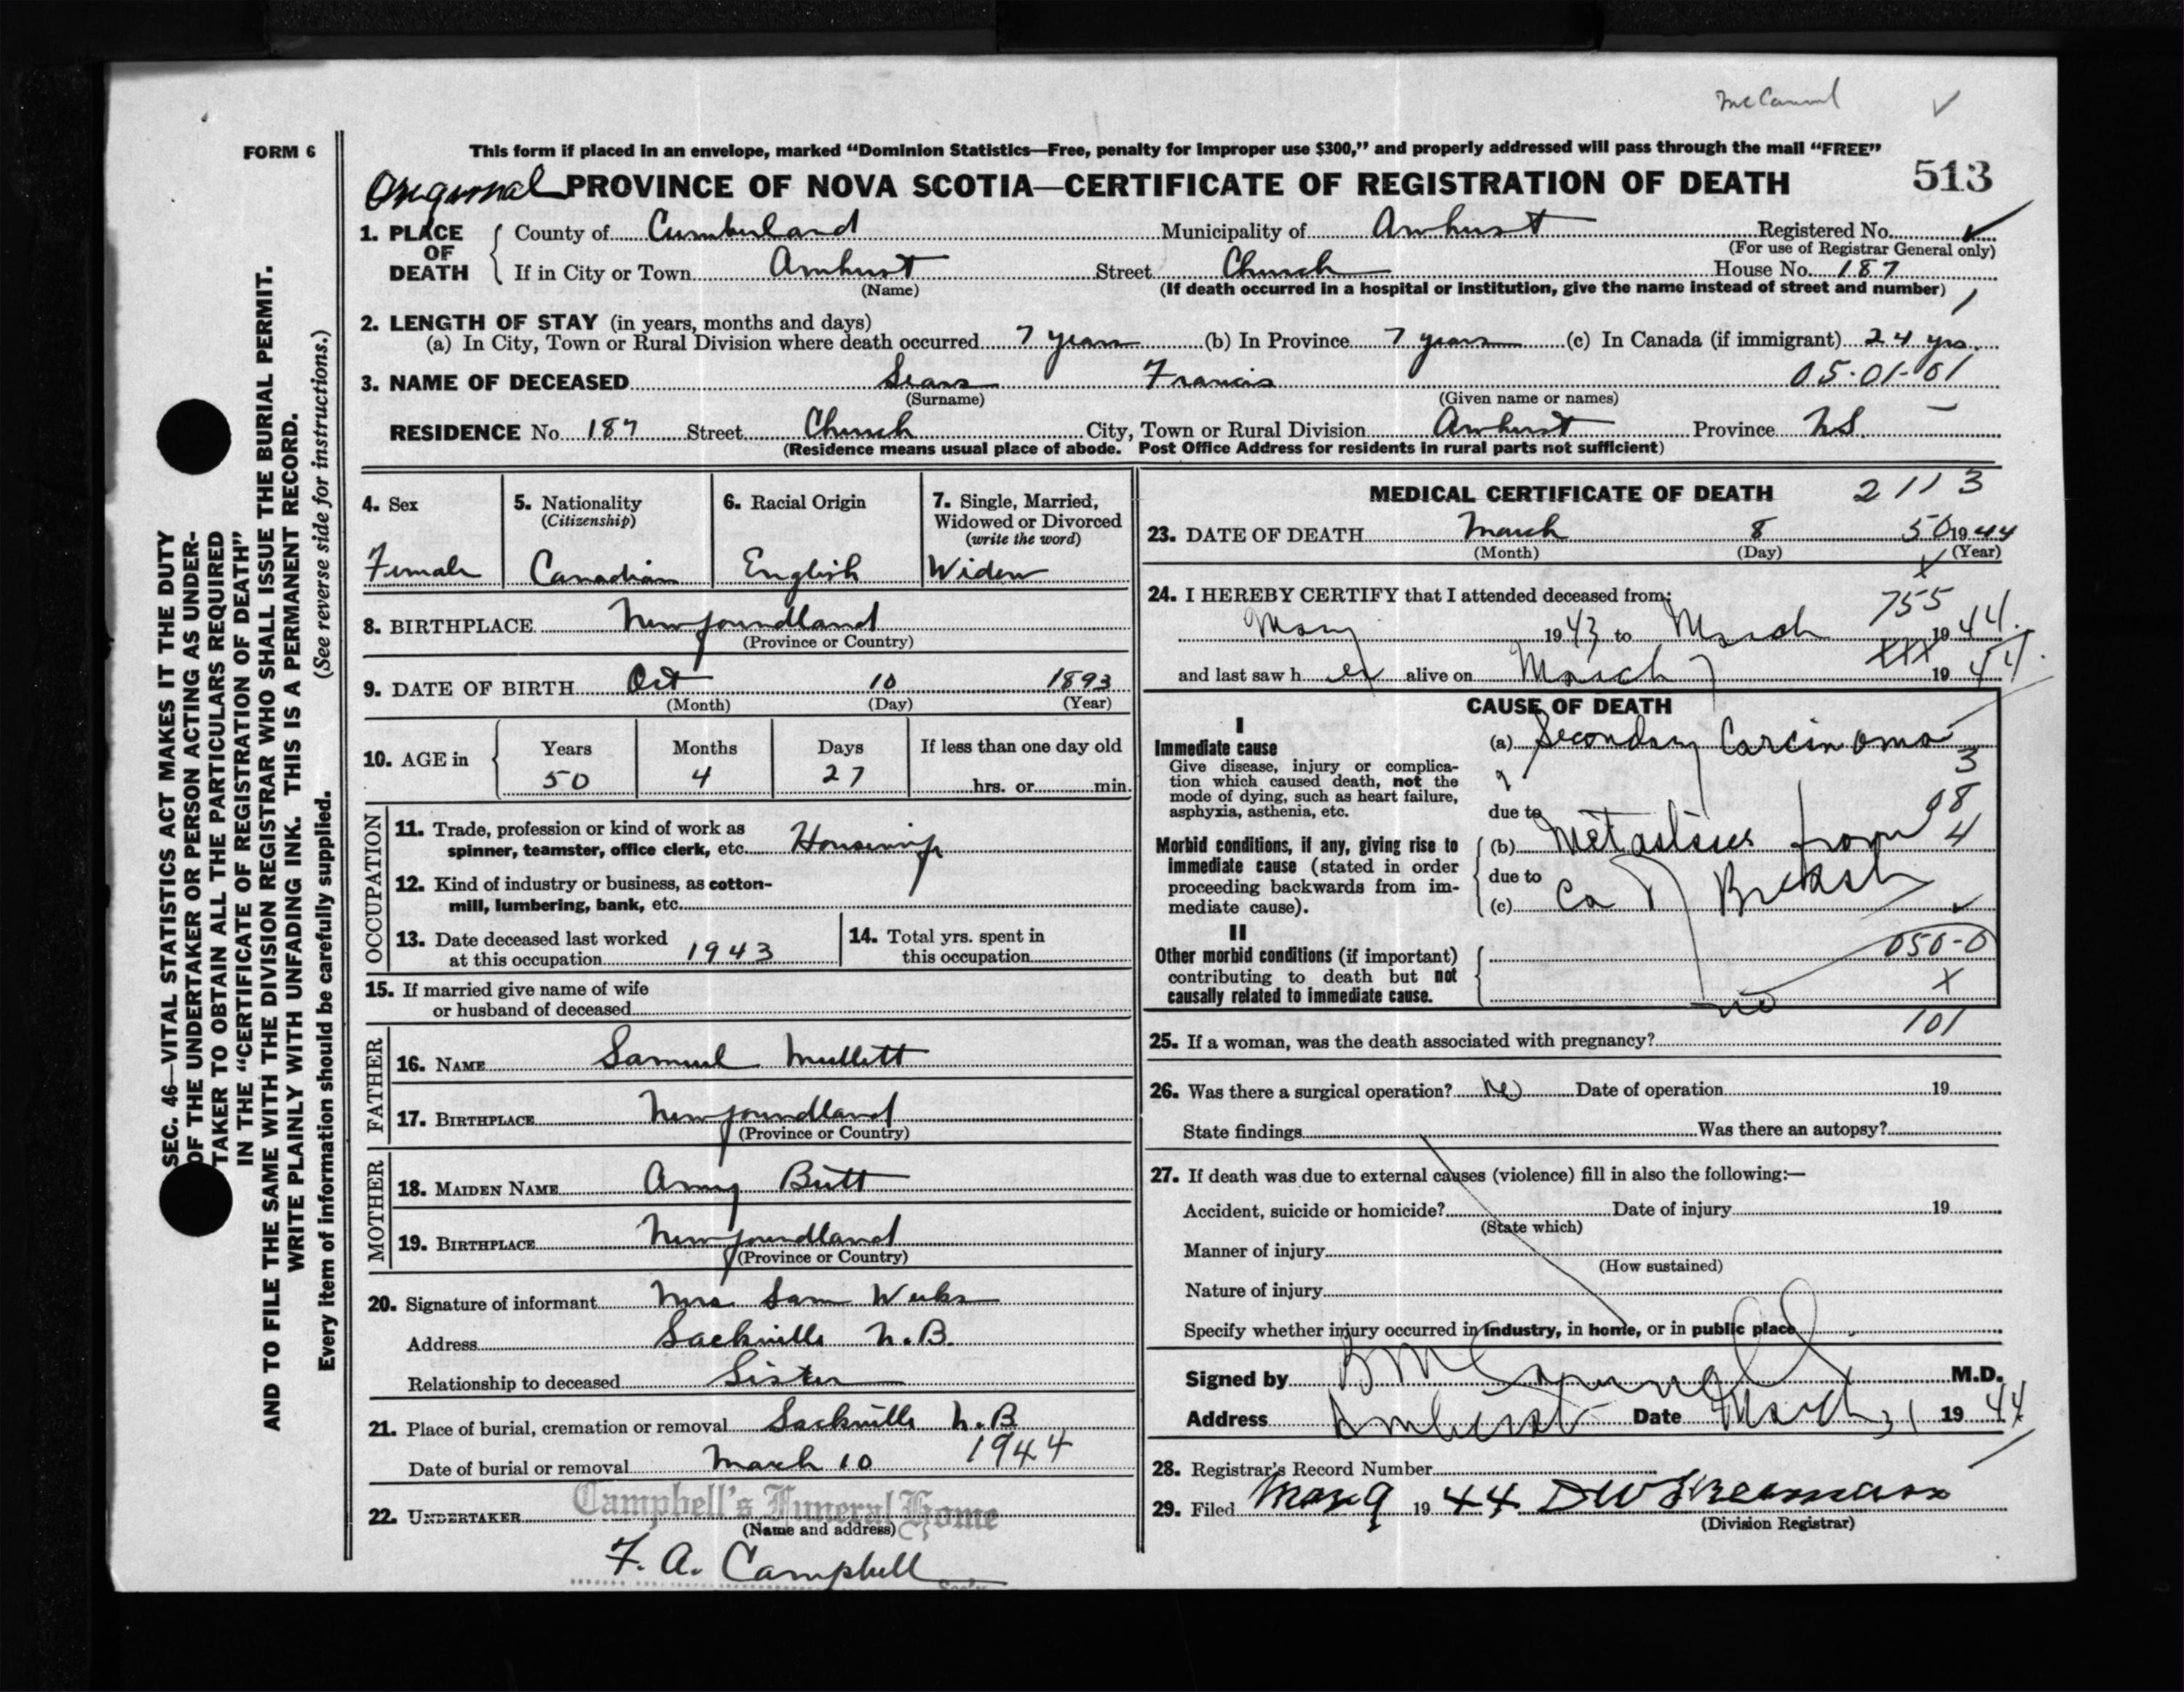 FORM 6
This form if placed in an envelope, marked “Dominion Statistics—Free, penalty for improper use $300,” and properly addressed will pass through the mail “FREE”
Original PROVINCE OF NOVA SCOTIA—CERTIFICATE OF REGISTRATION OF DEATH 513
1. PLACE OF DEATH County of Cumberland Municipality of Amherst Registered No.
(For use of Registrar General only)
If in City or Town Amherst Street Church House No. 187
(Name) (If death occurred in a hospital or institution, give the name instead of street and number)
2. LENGTH OF STAY (in years, months and days)
(a) In City, Town or Rural Division where death occurred 7 years (b) In Province 7 years (c) In Canada (if immigrant) 24 yrs.
3. NAME OF DECEASED Sears Francis 05-01-01
(Surname) (Given name or names)
RESIDENCE No. 187 Street Church City, Town or Rural Division Amherst Province N.S.
(Residence means usual place of abode. Post Office Address for residents in rural parts not sufficient)
4. Sex
Female
5. Nationality
(Citizenship)
Canadian
6. Racial Origin
English
7. Single, Married,
Widowed or Divorced
(write the word)
Widow
8. BIRTHPLACE Newfoundland
(Province or Country)
9. DATE OF BIRTH Oct 10 1893
(Month) (Day) (Year)
10. AGE in Years Months Days If less than one day old
50 4 27 hrs. or min.
OCCUPATION
11. Trade, profession or kind of work as
spinner, teamster, office clerk, etc. Housewife
12. Kind of industry or business, as cotton-
mill, lumbering, bank, etc.
13. Date deceased last worked
at this occupation 1943
14. Total yrs. spent in
this occupation
15. If married give name of wife
or husband of deceased
FATHER
16. NAME Samuel Mullett
17. BIRTHPLACE Newfoundland
(Province or Country)
MOTHER
18. MAIDEN NAME Amy Butt
19. BIRTHPLACE Newfoundland
(Province or Country)
20. Signature of informant Mrs. Sam Weeks
Address Sackville N.B.
Relationship to deceased Sister
21. Place of burial, cremation or removal Sackville N.B
Date of burial or removal March 10 1944
22. UNDERTAKER Campbell's Funeral Home
(Name and address)
F. A. Campbell
MEDICAL CERTIFICATE OF DEATH 2113
23. DATE OF DEATH March 8 50 1944
(Month) (Day) (Year)
24. I HEREBY CERTIFY that I attended deceased from:
755
May 1943 to March 1944.
and last saw her alive on March 7 XXX 1944.
CAUSE OF DEATH
I
Immediate cause
Give disease, injury or complica-
tion which caused death, not the
mode of dying, such as heart failure,
asphyxia, asthenia, etc.
(a) Secondary Carcinoma
3
due to
08
Morbid conditions, if any, giving rise to
immediate cause (stated in order
proceeding backwards from im-
mediate cause).
(b) Metastises from 4
due to
(c) Ca of Breast
II
Other morbid conditions (if important)
contributing to death but not
causally related to immediate cause.
050-0
X
no
101
25. If a woman, was the death associated with pregnancy?
26. Was there a surgical operation? No Date of operation 19
State findings Was there an autopsy?
27. If death was due to external causes (violence) fill in also the following:—
Accident, suicide or homicide? Date of injury 19
(State which)
Manner of injury
(How sustained)
Nature of injury
Specify whether injury occurred in industry, in home, or in public place
Signed by M.D.
Address Amherst Date March 31 1944
28. Registrar's Record Number
29. Filed Mar 9 1944
(Division Registrar)
SEC. 46—VITAL STATISTICS ACT MAKES IT THE DUTY
OF THE UNDERTAKER OR PERSON ACTING AS UNDER-
TAKER TO OBTAIN ALL THE PARTICULARS REQUIRED
IN THE “CERTIFICATE OF REGISTRATION OF DEATH”
AND TO FILE THE SAME WITH THE DIVISION REGISTRAR WHO SHALL ISSUE THE BURIAL PERMIT.
WRITE PLAINLY WITH UNFADING INK. THIS IS A PERMANENT RECORD.
Every item of information should be carefully supplied. (See reverse side for instructions.)